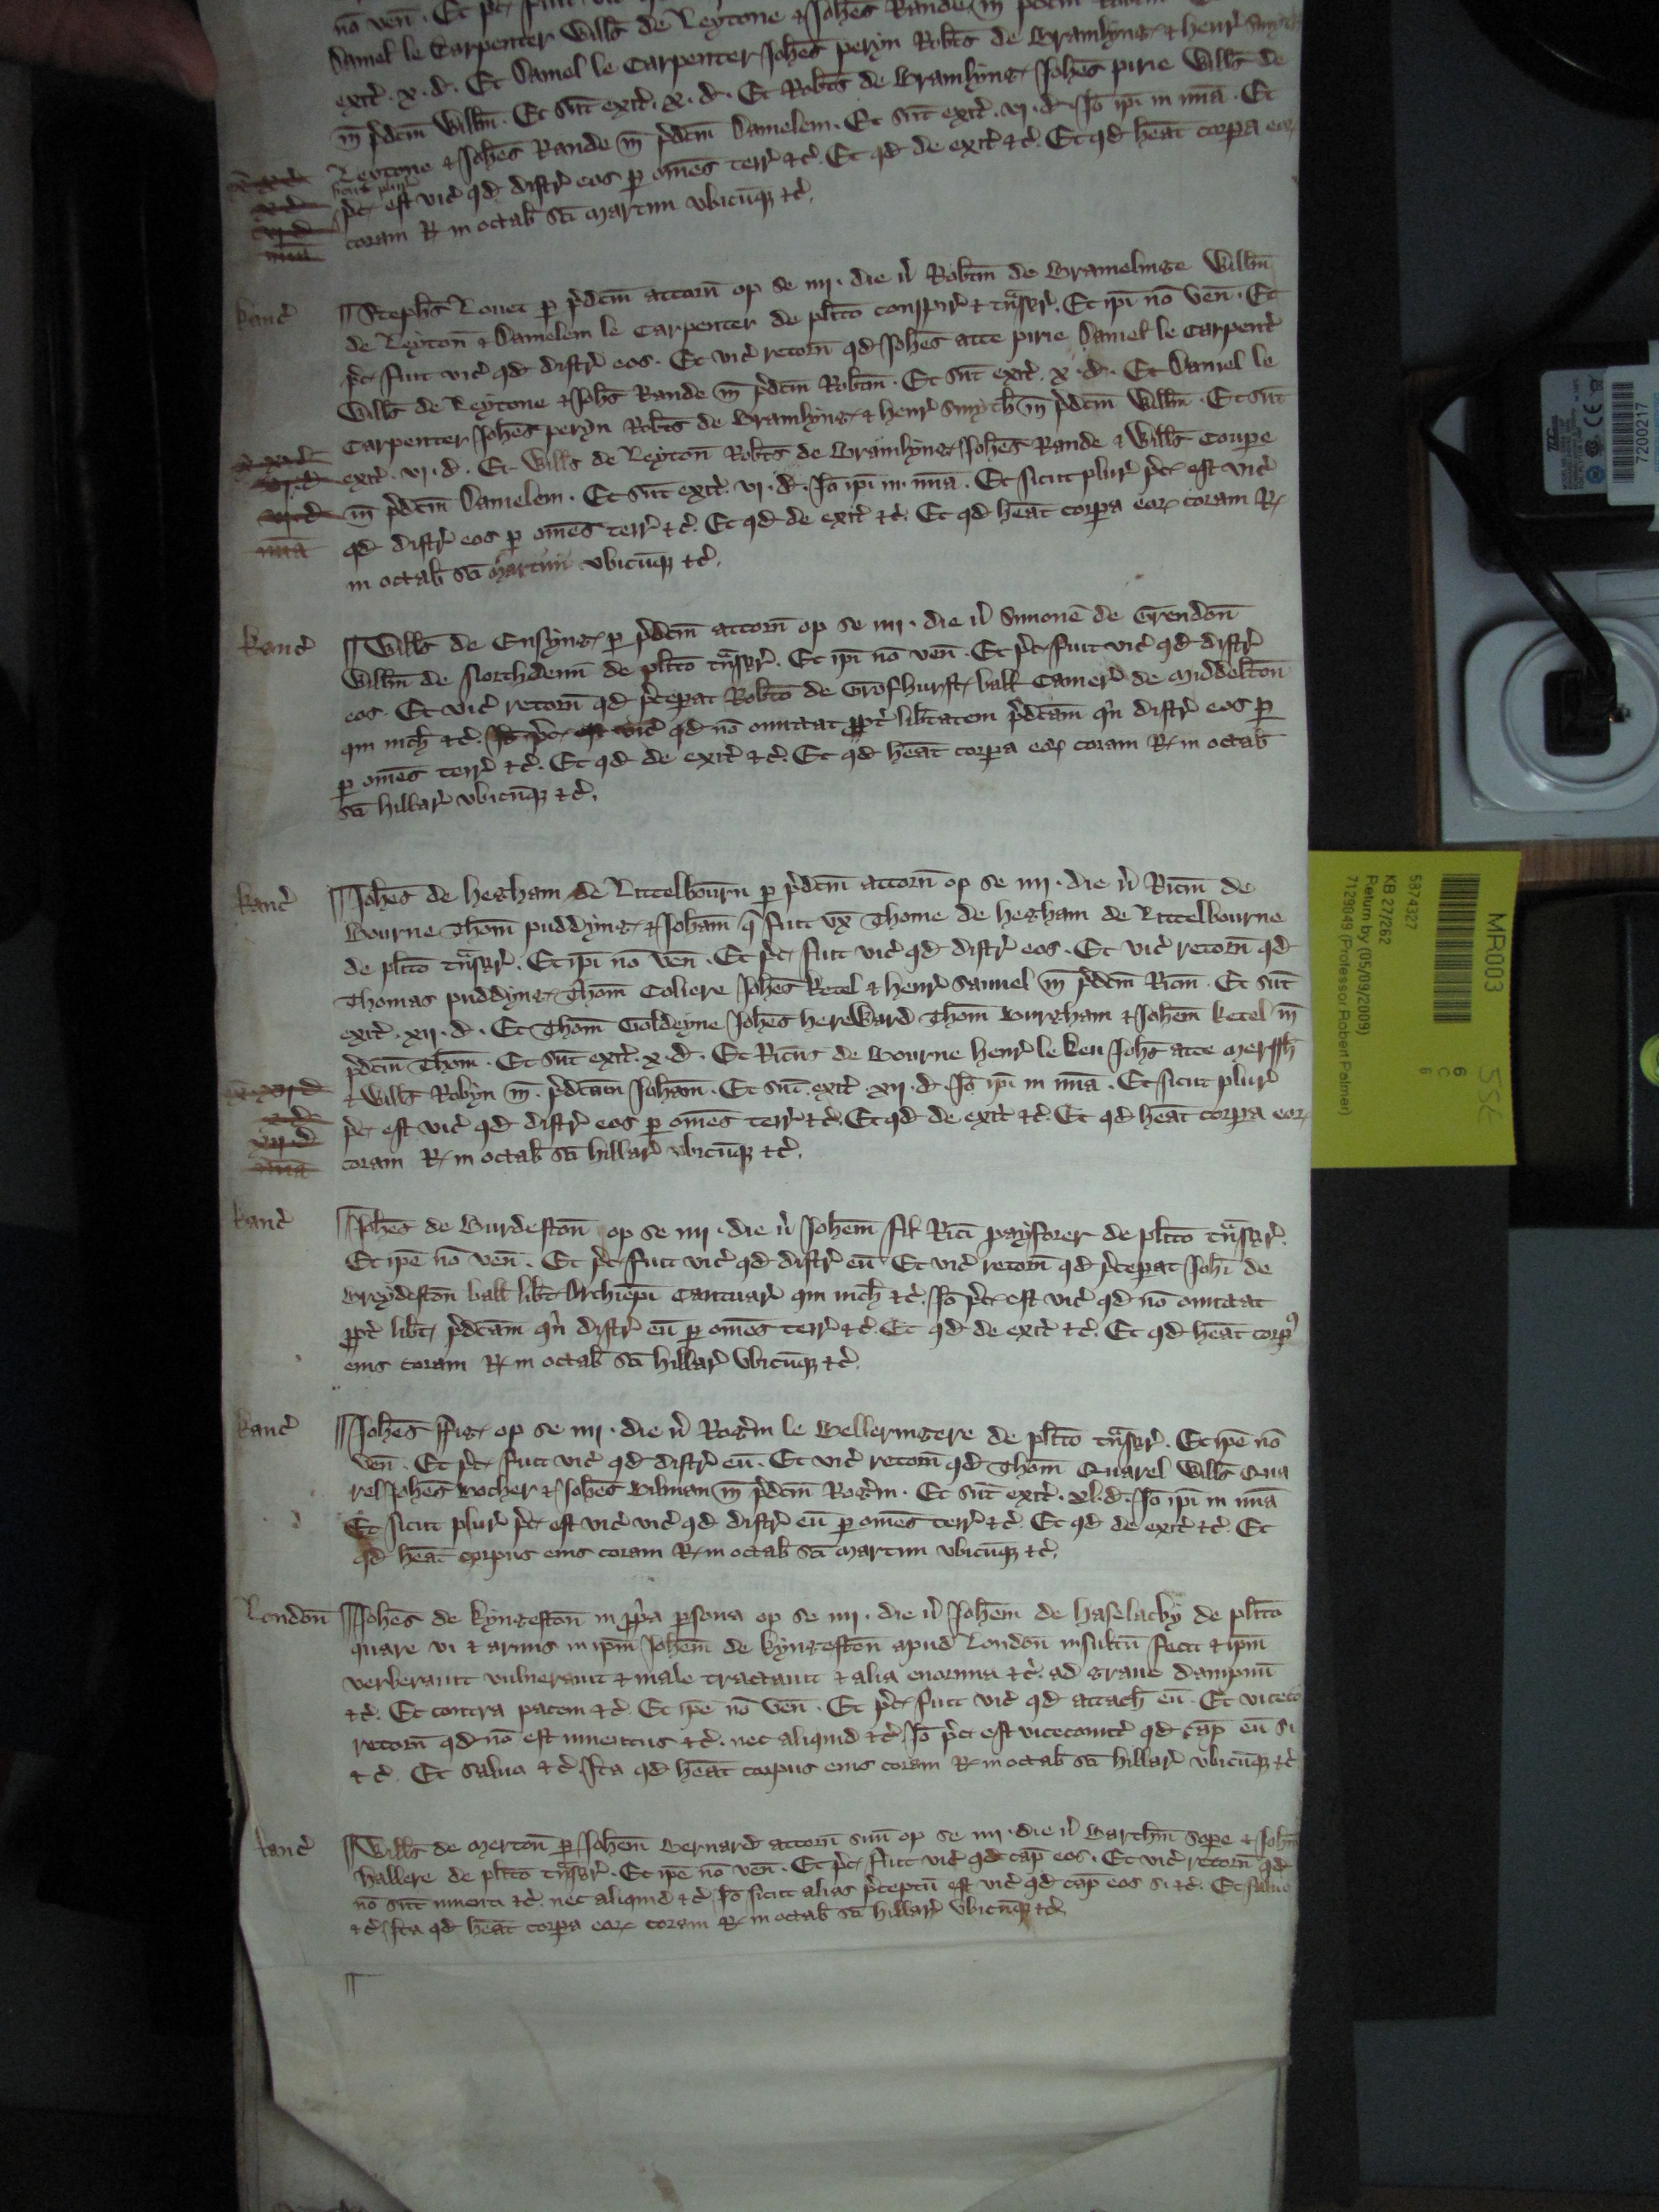 Daniel le Carpenter Wills de Leytone & Johes Rande in
exit . x . d . Et Daniel le Carpenter Johes peryn Robts de Bramlyng & henr
m pdcm Willm . Et sut exit . x . d . Et Robts de Bramlyng Johes pirie Wills de
Leytone & Johes Rande m pdcm Danielem . Et sut exit . vj . d . Io ipi in mia . Et
pc est vic qd distr eos p omes terr &c . Et qd de exit &c . Et qd heat corpa eor
coram R in octab sci martini vbicuq &c .
kanc
Stephs Louet p pdcm attorn op se iiij . die v Robtm de Bramelinge Willm
de Leyton & Danielem le Carpenter de plito conspir & tnsgr . Et ipi no ven . Et
pc fuit vic qd distr eos . Et vic retorn qd Johes atte pirie Daniel le Carpent
Wills de Leytone & Johs Rande m pdcm Robtm . Et sut exit . x . d . Et Daniel le
Carpenter Johes peryn Robts de Bramlyng & henr Smyth m pdcm Willm . Et sut
exit . vj . d . Et Wills de Leyton Robts de Bramlyng Johes Rande & Wills Coupe
m pdcm Danielem . Et sut exit . vj . d . Io ipi in mia . Et sicut plur pc est vic
qd distr eos p omes terr &c . Et qd de exit &c . Et qd heat corpa eor coram R
in octab sci martini vbicuq &c .
kanc
Wills de Ensyng p pdcm attorn op se iiij . die v Simone de Grendon
Willm de Northdenn de plito tnsgr . Et ipi no ven . Et pc fuit vic qd distr
eos . Et vic retorn qd pcepat Robto de Grofhurst ball Camer de middelton
qui nich &c . Io pc est vic qd no omittat ppt libtatem pdcam qn distr eos p
p omes terr &c . Et qd de exit &c . Et qd heat corpa eor coram R in octab
sci hillar vbicuq &c .
kanc
Johes de hegham de Littelbourn p pdcm attorn op se iiij . die v Ricm de
Bourne Thom puddyng & Joham q fuit vx Thome de hegham de Littelbourne
de plito tnsgr . Et ipi no ven . Et pc fuit vic qd distr eos . Et vic retorn qd
Thomas puddyng Thom Coliere Johes ketel & henr Samuel m pdcm Ricm . Et sut
exit . xij . d . Et Thom Goldeyne Johes hereward Thom Burgham & Johem ketel m
pdcm Thom . Et sut exit . x . d . Et Ricus de Bourne henr le ken Johs atte mersh
& Wills Robyn m . pdcam Joham . Et sut . exit . xij . d . Io ipi in mia . Et sicut plur
pc est vic qd distr eos p omes terr &c . Et qd de exit &c . Et qd heat corpa eor
xij d
coram R in octab sci hillar vbicuq &c .
kanc
Johes de Burdeston op se iiij . die v Johem fil Rici paysforer de plito tnsgr .
Et ipe no ven . Et pc fuit vic qd distr eu Et vic retorn qd pcepat Johi de
Breydeston ball libt Archiepi Cantuar qui nich &c . Io pc est vic qd no omittat
ppt libt pdcam qn distr eu p omes terr &c . Et qd de exit &c . Et qd heat corp
eius coram R in octab sci hillar vbicuq &c .
kanc
Johes ffig op se iiij . die v Rogm le Belleringere de plito tnsgr . Et ipe no
ven . Et pc fuit vic qd distr eu . Et vic retorn qd Thom Quarel Wills Qua
rel Johes Rocher & Johes Bilman m pdcm Rogm . Et sut exit . xl . d . Io ipi in mia
Et sicut plur pc est vic vic qd distr eu p omes terr &c . Et qd de exit &c . Et
qd heat corpus eius coram R in octab sci martini vbicuq &c .
London
Johes de kyngeston in ppa psona op se iiij . die v Johem de haselacby de plito
quare vi & armis in ipm Johem de kyngeston apud London insultu fecit & ipm
verberauit vulnerauit & male tractauit & alia enormia &c . ad graue dampnu
&c . Et contra pacem &c . Et ipe no ven . Et pc fuit vic qd attach eu . Et viceco
retorn qd no est inuentus &c . nec aliquid &c . Io pc est vicecomit qd cap eu si
&c . Et saluo &c . Ita qd heat corpus eius coram R in octab sci hillar vbicuq &c
kanc
Wills de merton p Johem Bernard attorn suu op se iiij . die v Barthm Sope & Johm
hallere de plito tnsgr . Et ipe no ven . Et pc fuit vic qd cap eos . Et vic retorn qd
no sut inuenti &c . nec aliquid &c . Io sicut alias pceptu est vic qd cap eos si &c . Et saluo
&c . Ita qd heat corpa eor coram R in octab sci hillar vbicuq &c
MR003
5874327
KB 27/262
Return by (05/09/2009)
71129049 (Professor Robert Palmer)
7200217